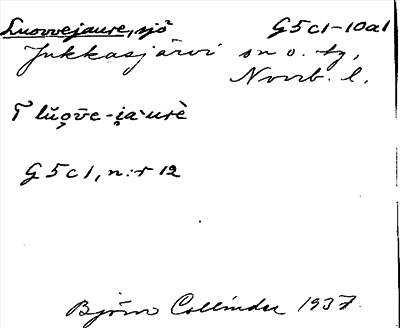 Luovvejaure, sjö G5c1-10a1
Jukkasjärvi sn o. tg,
Norrb. l.
T lŭo̯v̄e-i̯a͕urè
G5c1, n:r 12
Björn Collinder 1937.